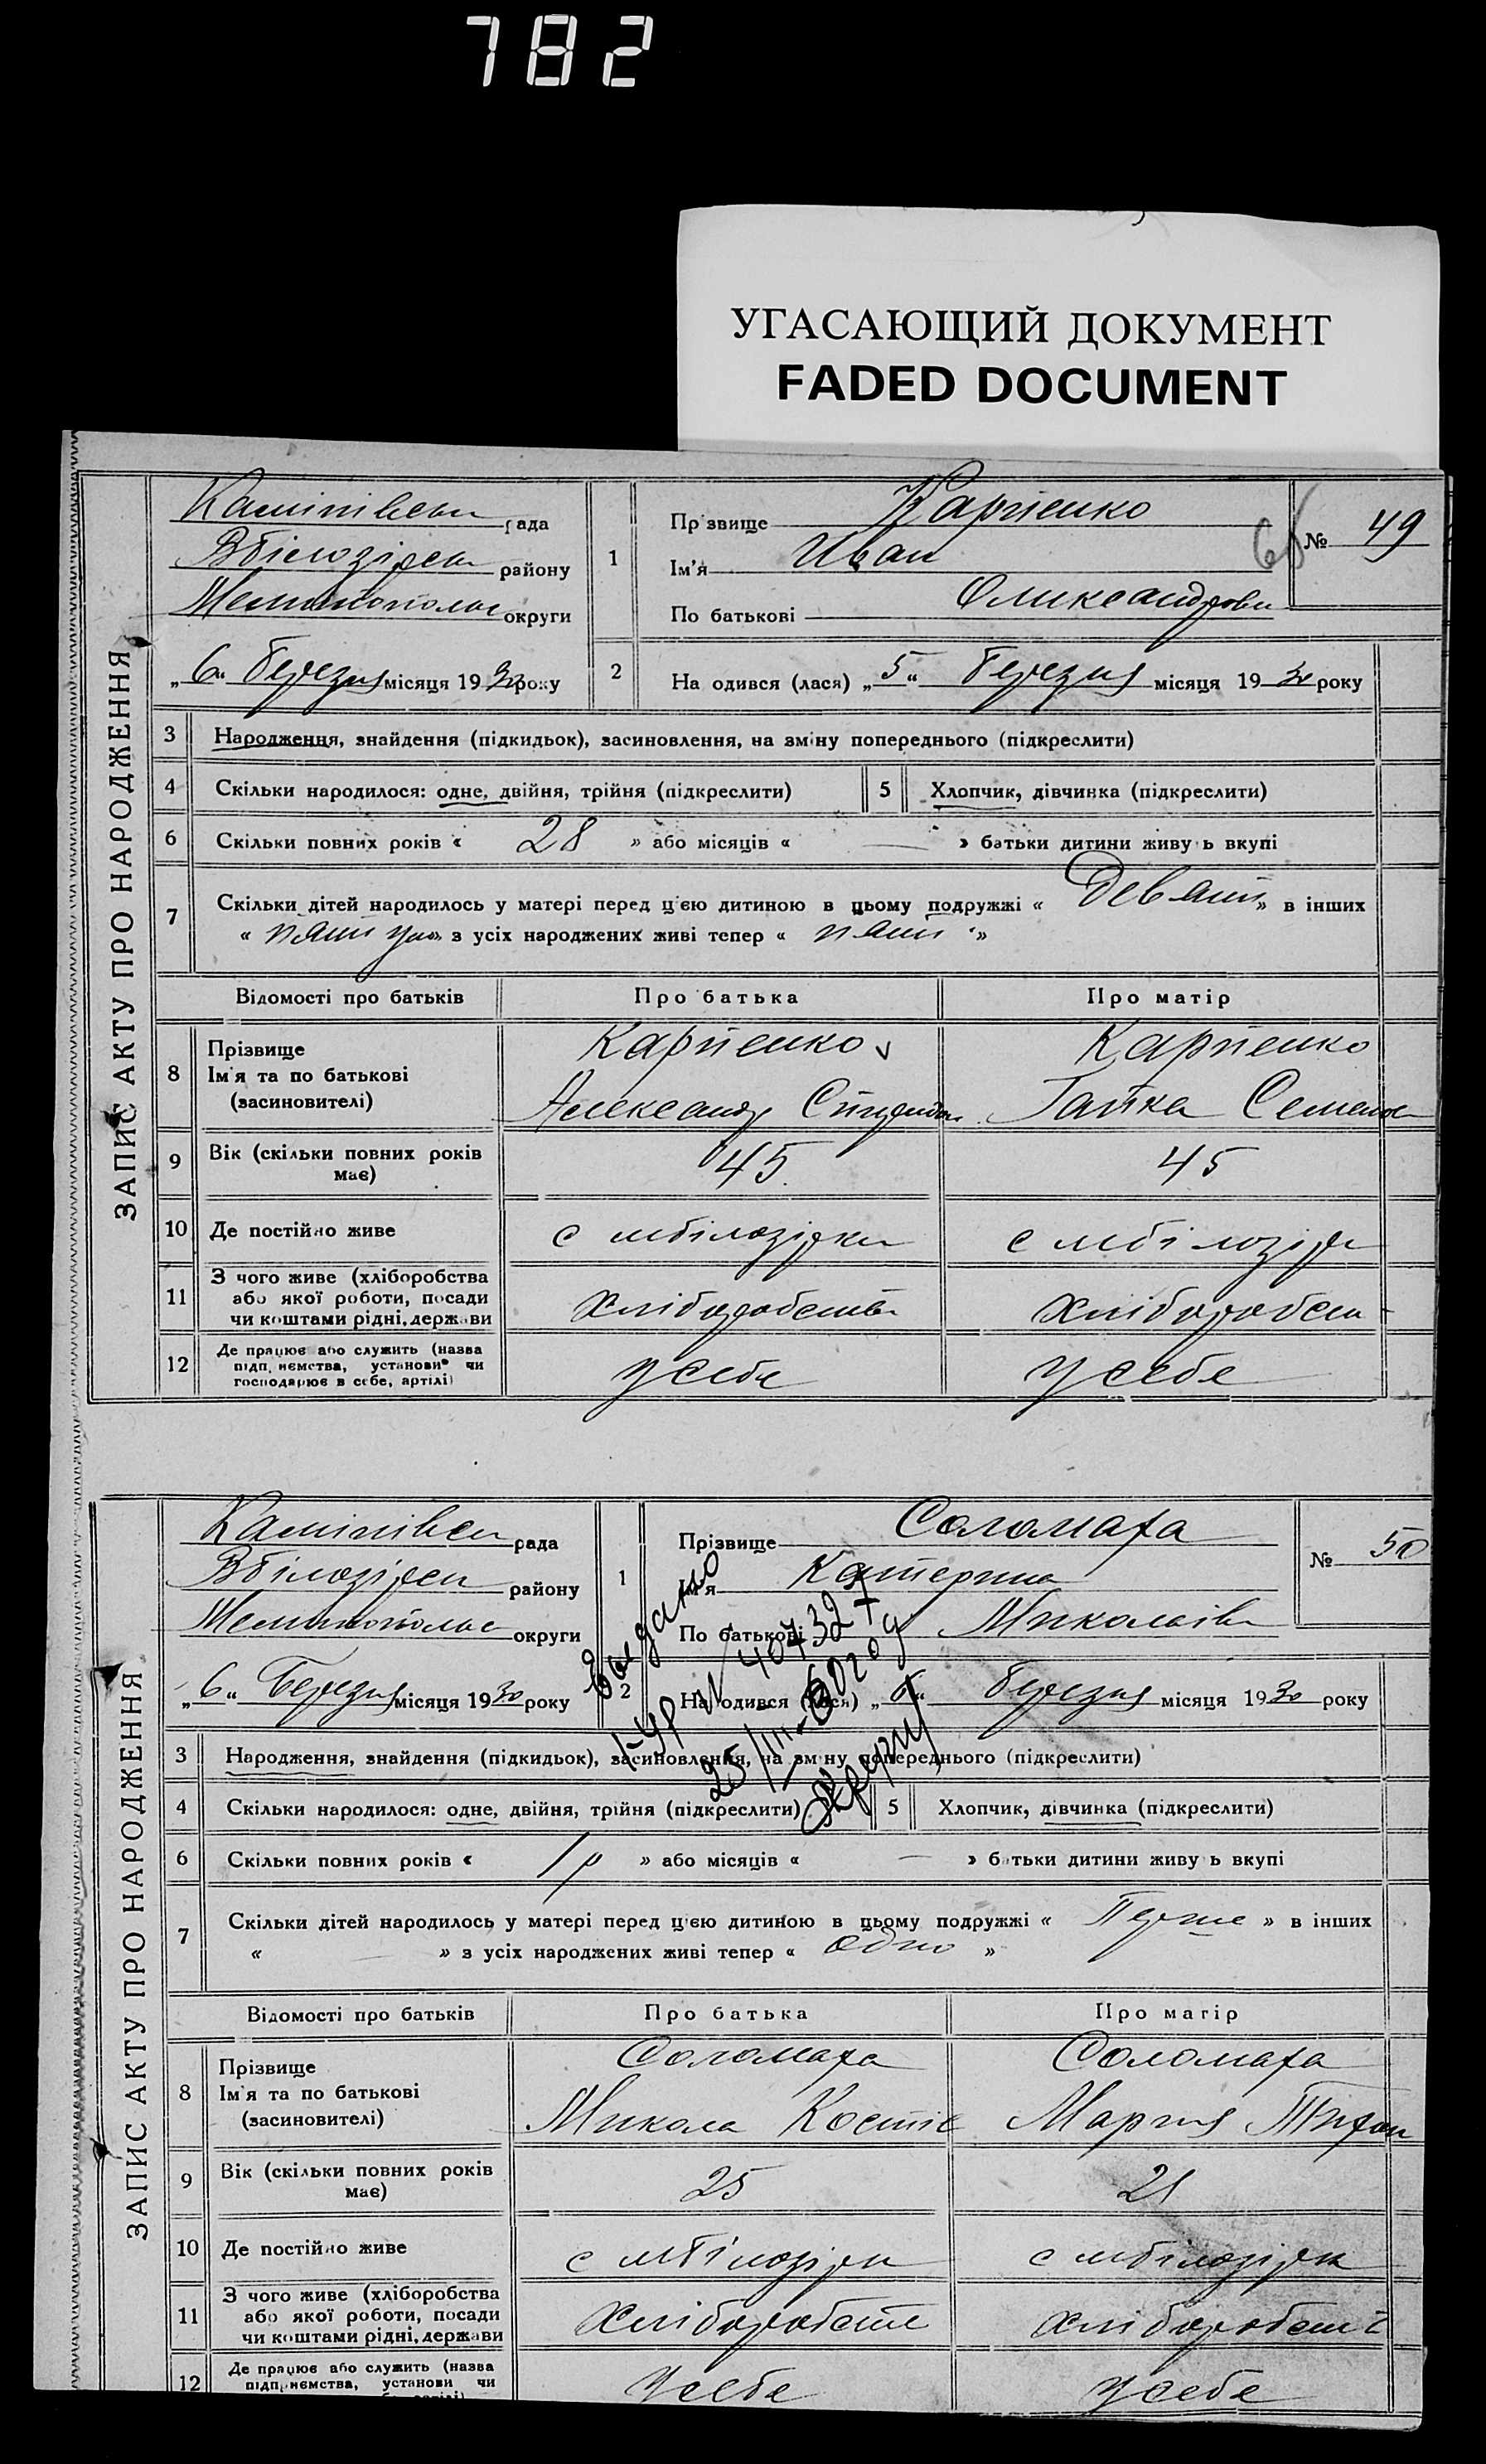 782
УГАСАЮЩИЙ ДОКУМЕНТ
FADED DOCUMENT
ЗАПИС АКТУ ПРО НАРОДЖЕННЯ
рада
Вбілозірськ району
Мелитопольс округи
„6“ березня місяця 1930 року
1
Прізвище Карпенко
Ім'я Иван
По батькові Олександрови
№ 49
2 На одився (лася) „5“ березня місяця 1930 року
3 Народження, знайдення (підкидьок), засиновлення, на зміну попереднього (підкреслити)
4 Скільки народилося: одне, двійня, трійня (підкреслити) 5 Хлопчик, дівчинка (підкреслити)
6 Скільки повних років « 28 » або місяців « — » батьки дитини живу ь вкупі
7 Скільки дітей народилось у матері перед цією дитиною в цьому подружжі « Девять » в інших
« » з усіх народжених живі тепер « »
Відомості про батьків Про батька Про матір
8 Прізвище Карпенко Карпенко
Ім'я та по батькові
(засиновителі) Александр Гапка Семенов
9 Вік (скільки повних років має) 45 45
10 Де постійно живе с мбілозірки с мбілозірк
11 З чого живе (хліборобства
або якої роботи, посади
чи коштами рідні, держави Хліборобства Хліборобст
12 Де працює або служить (назва
підприємства, установи чи
господарює в себе, артілі) у себе у себе
ЗАПИС АКТУ ПРО НАРОДЖЕННЯ
рада
Вбілозірськ району
Мелитопольс округи
„6“ Березня місяця 1930 року
1
Прізвище Соломаха
Ім'я Катерина
По батькові Миколаів
№ 50
2 На одився (лася) „6“ березня місяця 1930 року
Выдано
25/III-60 год
3 Народження, знайдення (підкидьок), засиновлення, на зміну попереднього (підкреслити)
4 Скільки народилося: одне, двійня, трійня (підкреслити) 5 Хлопчик, дівчинка (підкреслити)
6 Скільки повних років « 1 р » або місяців « — » батьки дитини живу ь вкупі
7 Скільки дітей народилось у матері перед цією дитиною в цьому подружжі « Перше » в інших
« — » з усіх народжених живі тепер « одно »
Відомості про батьків Про батька Про матір
8 Прізвище Соломаха Соломаха
Ім'я та по батькові
(засиновителі) Микола Костів Мария Тихон
9 Вік (скільки повних років має) 25 21
10 Де постійно живе с мбілозірк с мбілозірк
11 З чого живе (хліборобства
або якої роботи, посади
чи коштами рідні, держави Хліборобств Хліборобст
12 Де працює або служить (назва
підприємства, установи чи
у себе у себе